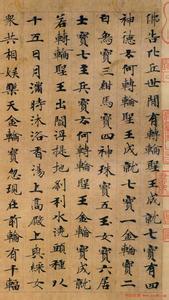 佛告比丘世間有轉輪聖王成就七寶有四
神德云何轉輪聖王成就七寶一金輪寶二
白象寶三紺馬寶四神珠寶五玉女寶六居
士寶七主兵寶云何轉輪聖王金輪寶成就
若轉輪聖王出閻浮提地刹利水澆頭種以
十五日月滿時沐浴香湯上高殿上與婇女
衆共相娛樂天金輪寶忽現在前輪有千輻